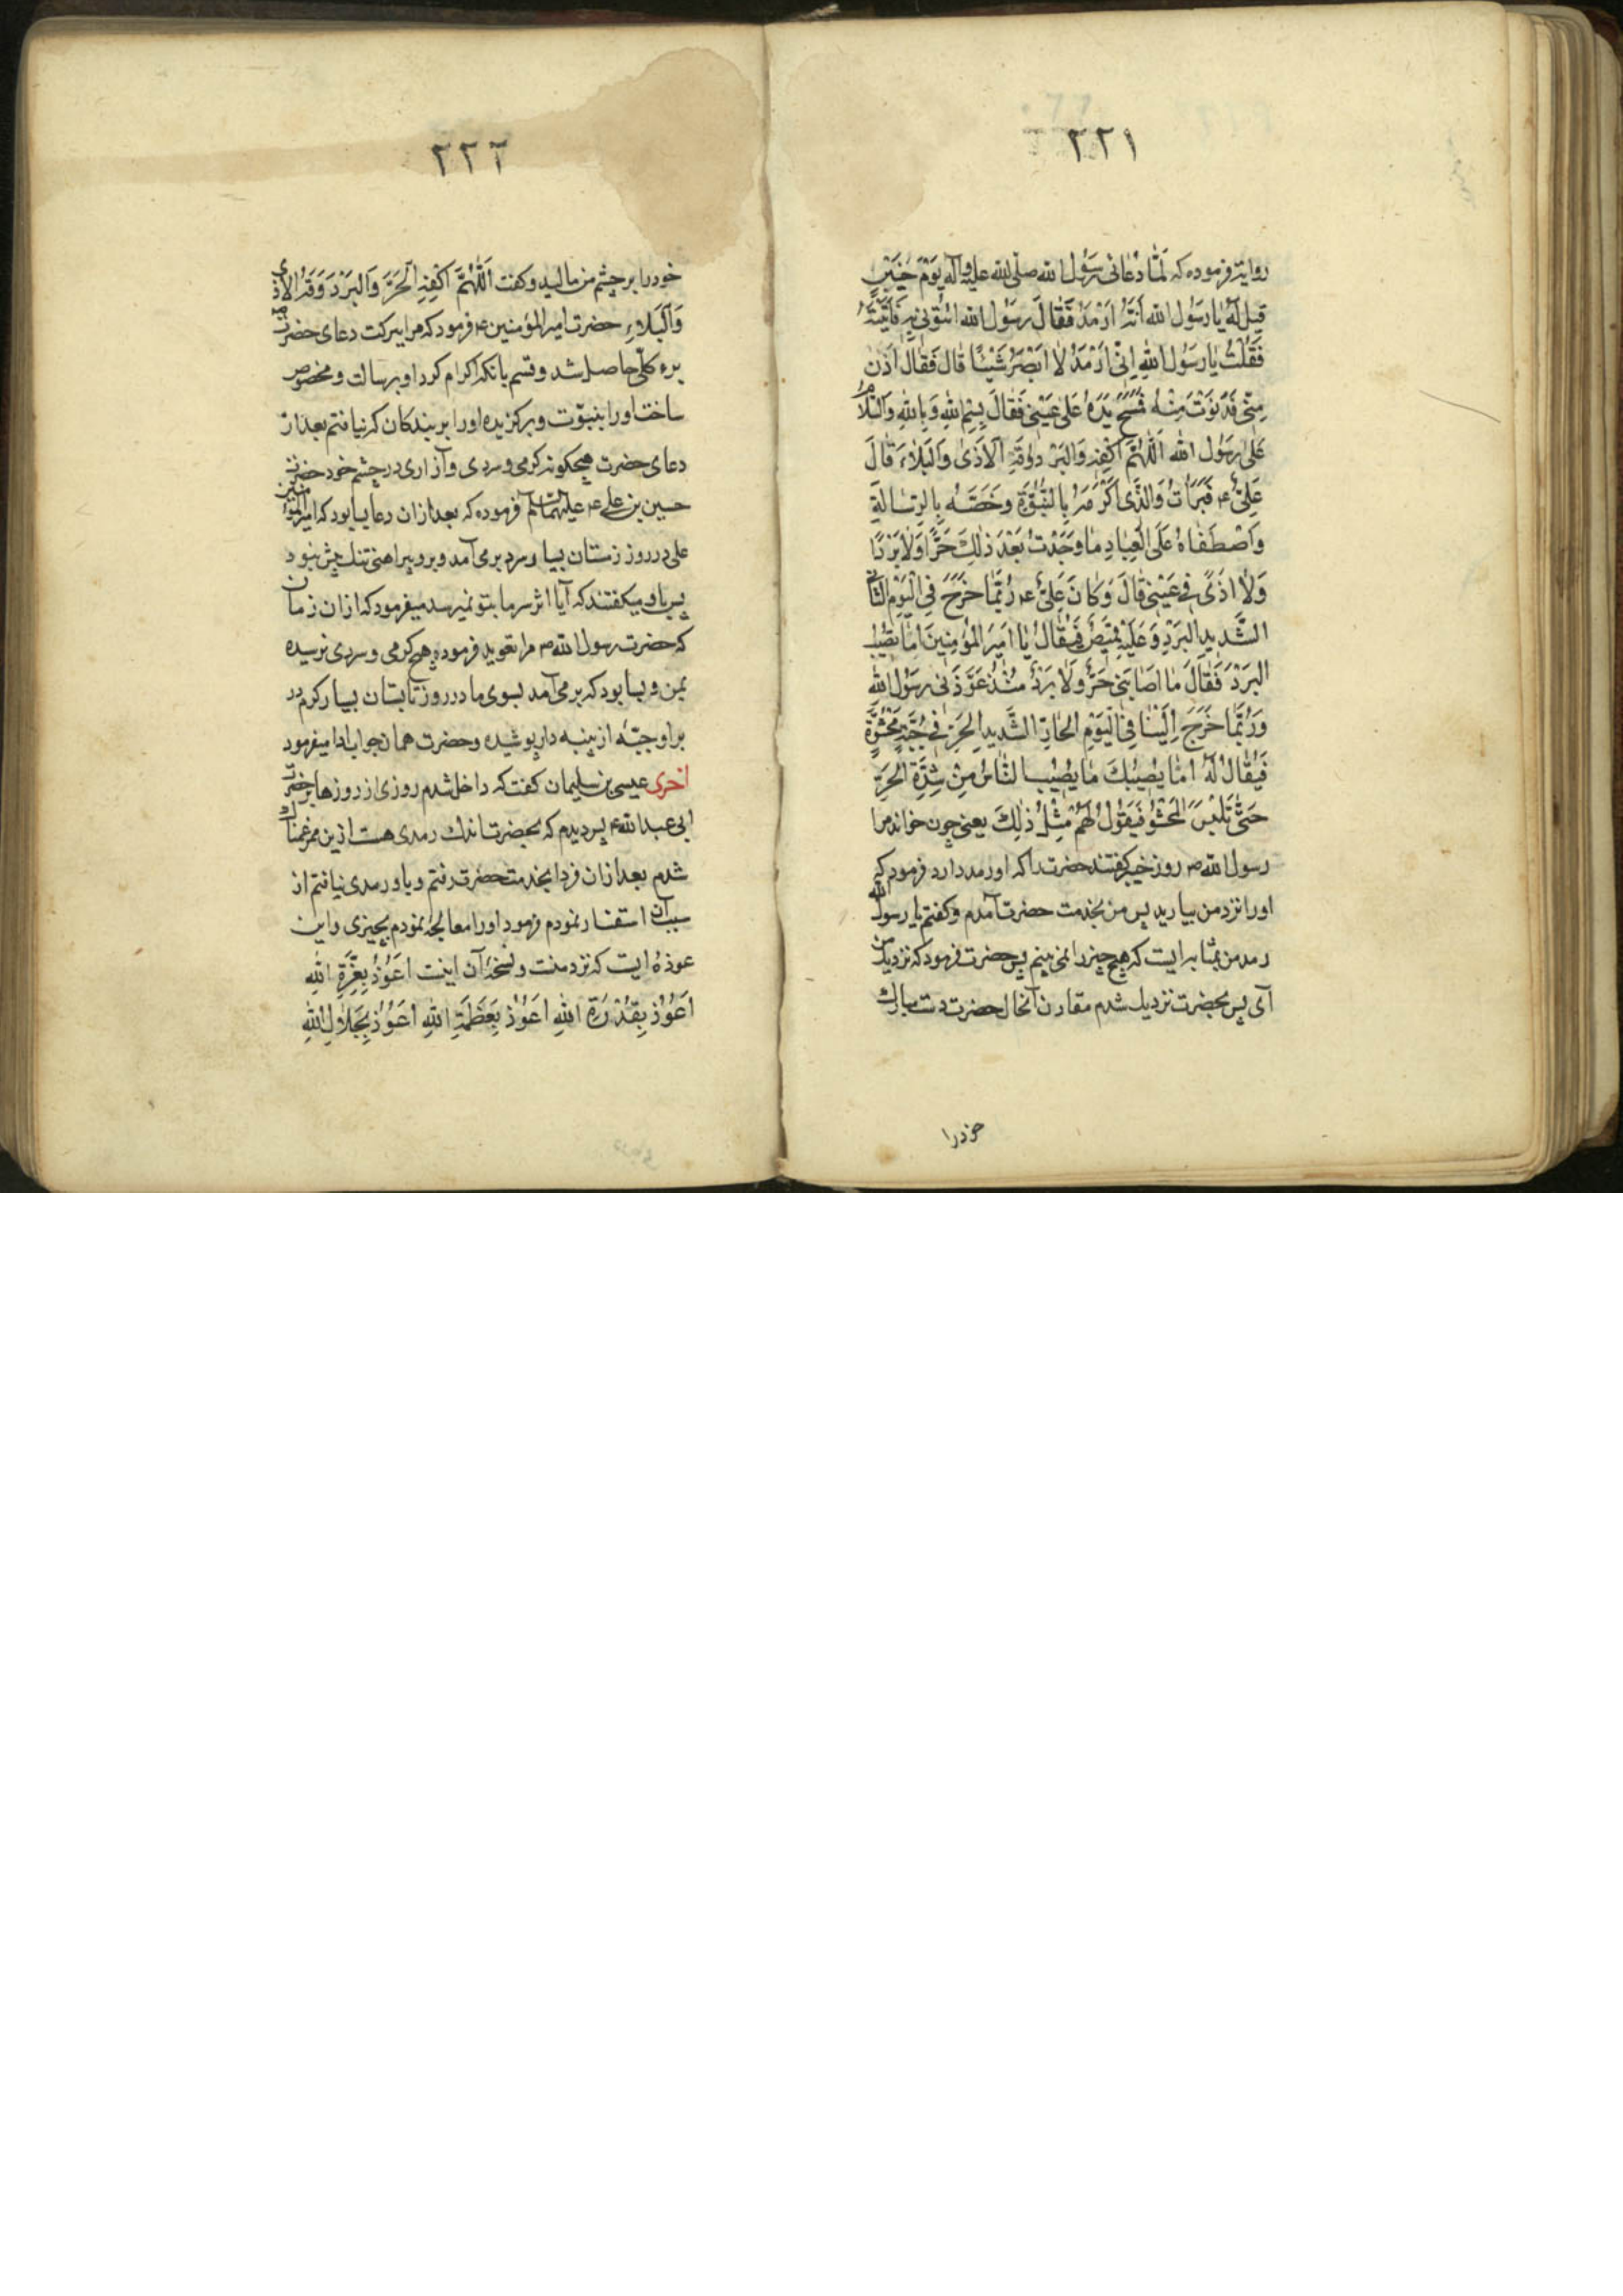 ٢٢١
روایة فرموده که لَمّٰا دَعٰانی رَسُول الله صلی الله علیه وآله یَوْمَ خَیْبَر
قیلَ لَهُ یٰا رَسُول الله اَنَّهُ اَرْمَد فَقٰالَ رَسُول الله ائْتُونی بِهِ فَاَتَیْتُهُ
فَقُلْتُ یٰا رَسُولَ اللهِ اِنّی اَرْمَدُ لٰا اَبْصَرُ شَیْئًا قٰال فَقٰالَ اَدْن
مِنّی فَدَنَوْتُ مِنْهُ فَمَسَحَ یَدَهُ عَلیٰ عَیْنی فَقٰالَ بِسْمِ اللهِ وَبِاللهِ وَالسَّلٰامُ
عَلیٰ رَسُول الله اَللّٰهُمَّ اکْفِهِ وَالبَرْدَ وَقِهِ اَلاَذیٰ وَالبَلٰاءَ قٰالَ
عَلِیٌّ ع فَبَرَأْتُ وَالَّذی اَکْرَمَهُ بِالنُّبُوَّةِ وخَصَّهُ بِالرِّسٰالَةِ
وَاصْطَفٰاهُ عَلَی الْعِبٰادِ مٰا وَجَدْتُ بَعْدَ ذٰلِكَ حَرًّا وَلٰا بَرْدًا
وَلٰا اَذیً فی عَیْنی قٰالَ وَکٰانَ عَلِیٌّ ع رُبَّمٰا خَرَجَ فِی الْیَوْمِ الشّٰاتی
الشَّدیدِ البَرْدِ وَعَلَیْهِ قَمیصٌ فَیُقٰالُ یٰا اَمیرَ المؤمنینَ اَمٰا یُصیبُك
البَرْدُ فَقٰالَ مٰا اَصٰابَنی حَرٌّ وَلٰا بَرْدٌ مُنْذُ عَوَّذَنی رَسُولُ الله
وَرُبَّمٰا خَرَجَ اِلَیْنٰا فِی الْیَوْمِ الحٰارِّ الشَّدیدِ الحَرِّ فی جُبَّةٍ مَحْشُوَّةٍ
فَیُقٰالُ لَهُ اَمٰا یُصیبُكَ مٰا یُصیبُ النّٰاسُ مِنْ شِدَّةِ الحَرِّ
حَتّٰی تَلْبَسَ المَحْشُوَّ فَیَقُولُ لَهُمْ مِثْلُ ذٰلِكَ یعنی چون خواند مرا
رسول الله ص روز خیبر گفتند حضرت را که او رمد دارد فرمود که
او را نزد من بیارید پس من بخدمت حضرت آمدم وگفتم یا رسول الله
رمد من بمثابه ایست که هیچ چیز را نمی بینم پس حضرت فرمود که نزدیك من
آی پس بحضرت نزدیك شدم مقارن آنحال حضرت دست مبارك
خود را
٢٢٢
خود را بر چشم من مالید وگفت اَللّٰهُمَّ اکْفِهِ اَلْحَرَّ وَالبَرْدَ وَقِهِ الاَذی
وَالبَلٰاءِ حضرت امیرالمؤمنین ع فرمود که مرا ببرکت دعای حضرت
برء کلّی حاصل شد وقسم بانکه اکرام کرد او برسالت ومخصوص
ساخت او را بنبوّت وبرگزیده او را بر بندکان که نیافتم بعد از
دعای حضرت هیچگونه گرمی وسردی وآزاری در چشم خود حضرت
حسین بن علی ع علیهما السلام فرموده که بعد از آن دعا بسا بود که امیرالمؤمنین
علی در روز زمستان بسیار سرد بر می آمد وبر وپیراهنی تنك بیش نبود
پس باو میگفتند که آیا اثر سرما بتو نمیرسد میفرمود که ازان زمان
که حضرت رسول الله ص مرا تعوید فرموده هیچ گرمی وسردی نرسیده
بمن وبسا بود که بر می آمد بسوی ما در روز تابستان بسیار گرم در
بر او جبّهٔ از پنبه دار پوشیده وحضرت همان جواب ادا میفرمود
اخری عیسی بن سلیمان گفت که داخل شدم روزی از روزها بر حضرت
ابی عبدالله ع پس دیدم که بحضرت اندك رمدی هست ازین ممر غمناك
شدم بعد ازان فردا بخدمت حضرت رفتم وباو رمدی نیافتم از
سبب آن استفسار نمودم فرمود او را معالجه نمودم بچیزی واین
عوذهٔ ایست که نزد منست ونسخهٔ آن اینست اَعُوذُ بِعِزَّةِ اللهِ
اَعُوذُ بِقُدْرَةِ اللهِ اَعُوذُ بِعَظَمَةِ اللهِ اَعُوذُ بِجَلٰالِ اللهِ